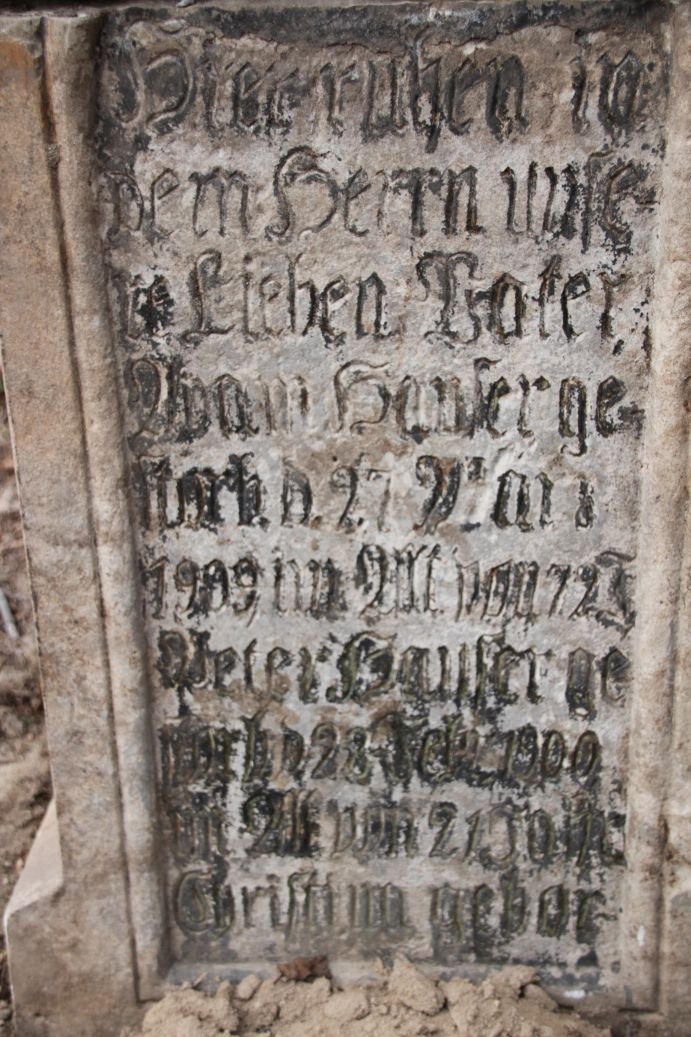 Hier ruhen in
dem Herrn unse-
re Lieben Vater,
Adam Hauser ge-
storb. d. 27 Mai
1909 im Alt von 72 J
Peter Hauser ge
storb d 28 Feb. 1900
im Alt von 21 Jah.
Christina gebor